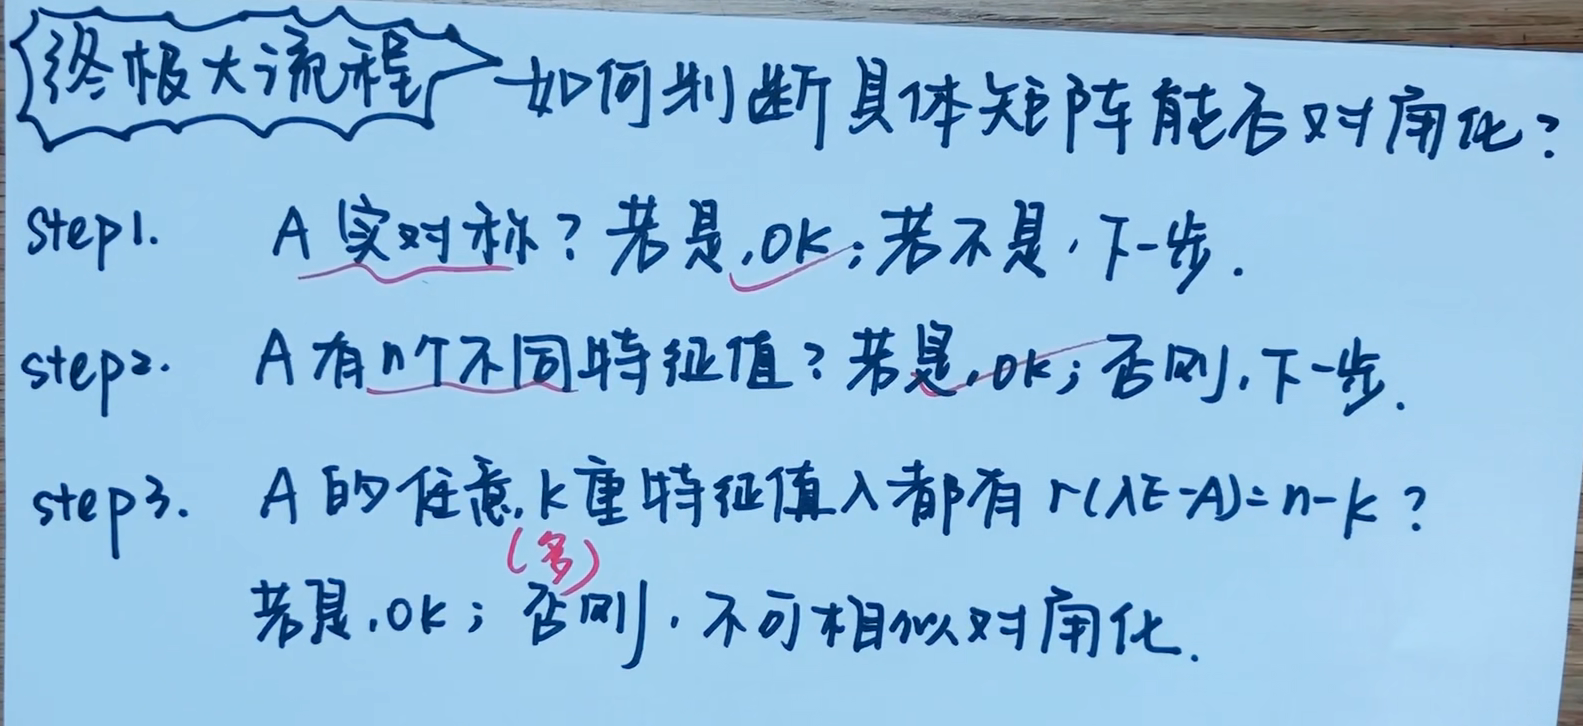 终极大流程 如何判断具体矩阵能否对角化？
step1. A实对称？若是,OK；若不是,下一步.
step2. A有n个不同特征值？若是,OK；否则,下一步.
step3. A的任意k重特征值λ都有r(λE-A)=n-k？
(多)
若是,OK；否则,不可相似对角化.